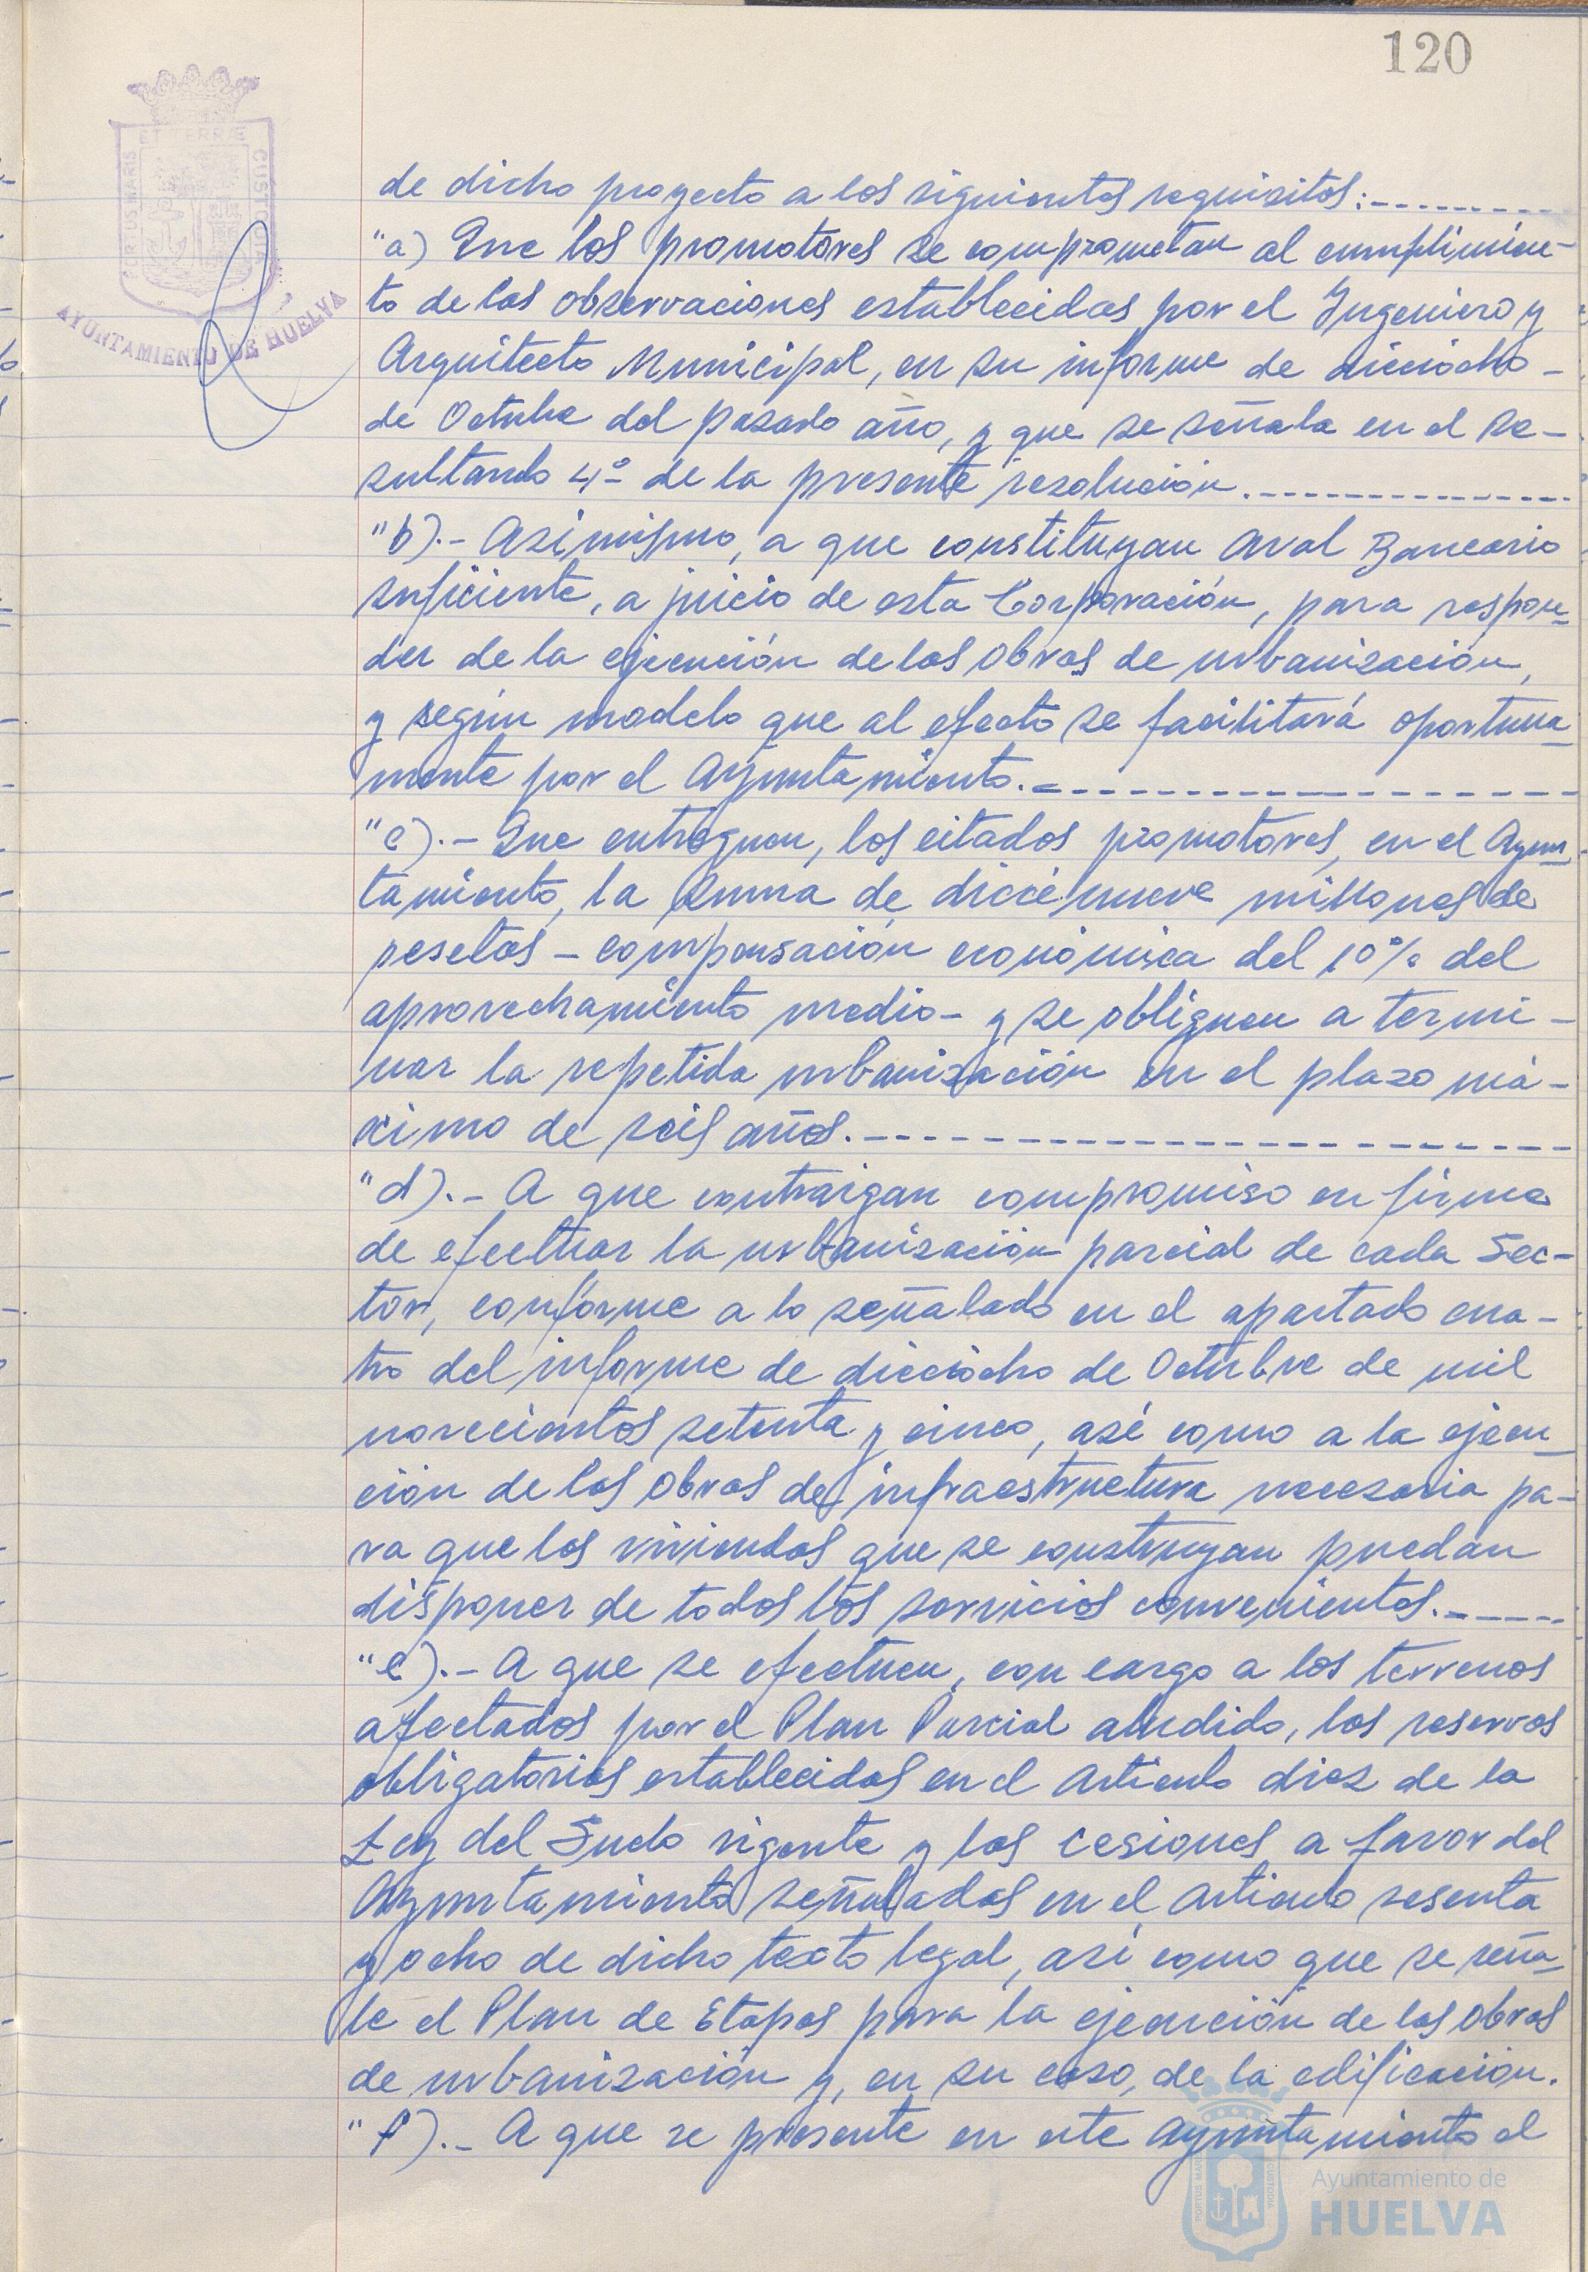 120
ET TERRÆ
PORTUS MARIS
CUSTODIA
AYUNTAMIENTO DE HUELVA
de dicho proyecto a los siguientes requisitos:---------
"a) Que los promotores se comprometan al cumplimien-
to de las observaciones establecidas por el Ingeniero y
Arquitecto Municipal, en su informe de dieciocho -
de Octubre del pasado año, y que se señala en el Re-
sultando 4º de la presente resolución.---------------
"b).- Asimismo, a que constituyan Aval Bancario
suficiente, a juicio de esta Corporación, para respon-
der de la ejecución de las obras de urbanización,
y según modelo que al efecto se facilitará oportuna-
mente por el Ayuntamiento.-------------------
"c).- Que entreguen, los citados promotores, en el Ayun-
tamiento, la suma de diecinueve millones de
pesetas - compensación económica del 10% del
aprovechamiento medio - y se obliguen a termi-
nar la repetida urbanización en el plazo má-
ximo de seis años.-------------------------
"d).- A que contraigan compromiso en firme
de efectuar la urbanización parcial de cada Sec-
tor, conforme a lo señalado en el apartado cua-
tro del informe de dieciocho de Octubre de mil
novecientos setenta y cinco, así como a la ejecu-
ción de las obras de infraestructura necesaria pa-
ra que las viviendas que se construyan puedan
disponer de todos los servicios convenientes.------
"e).- A que se efectuen, con cargo a los terrenos
afectados por el Plan Parcial aludido, las reservas
obligatorias establecidas en el Artículo diez de la
Ley del Suelo vigente y las cesiones a favor del
Ayuntamiento señaladas en el artículo sesenta
y ocho de dicho texto legal, así como que se seña-
le el Plan de Etapas para la ejecución de las obras
de urbanización y, en su caso, de la edificación.
"f).- A que se presente en este Ayuntamiento el
Ayuntamiento de
HUELVA